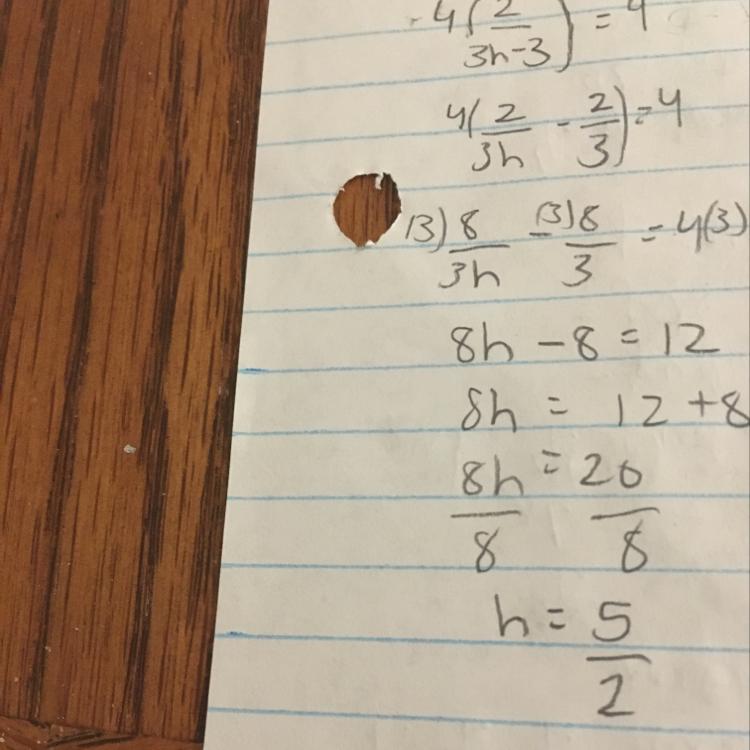 4(2/3h-3) = 4
4(2/3h - 2/3) = 4
(3)8/3h - (3)8/3 = 4(3)
8h - 8 = 12
8h = 12 + 8
8h/8 = 20/8
h = 5/2